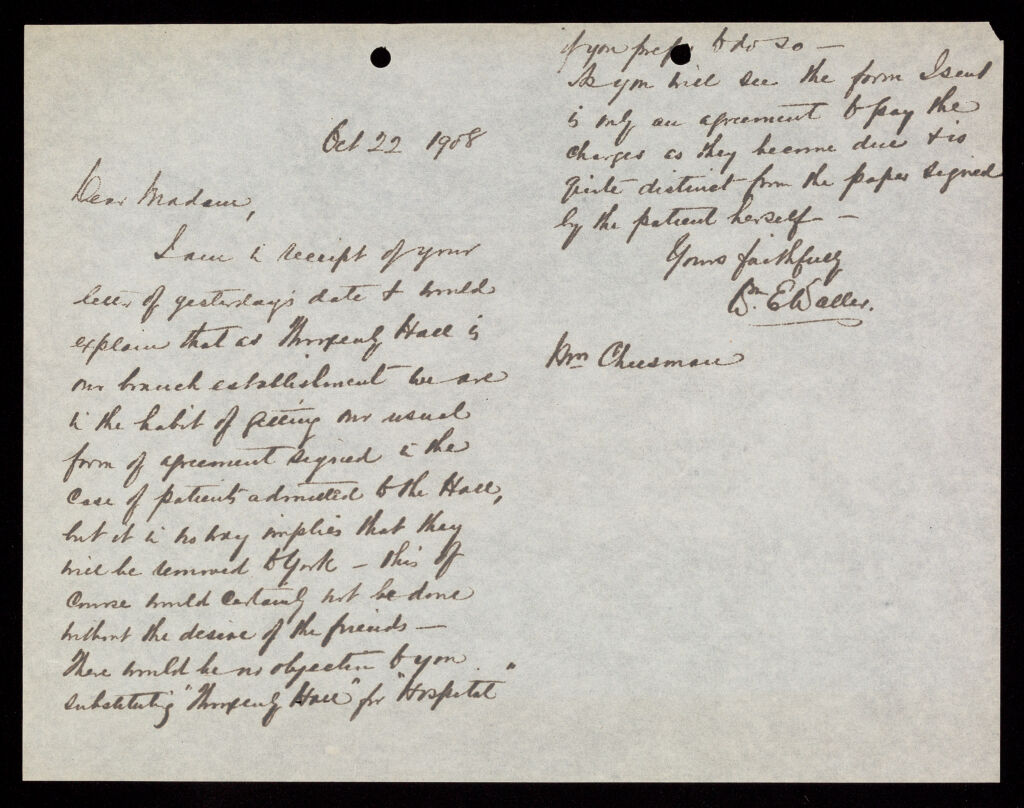 Oct 22 1908
Dear Madam,
I am in receipt of your
letter of yesterday's date & would
explain that as Throxenby Hall is
our branch establishment we are
in the habit of getting our usual
form of agreement signed in the
case of patients admitted to the Hall,
but it in no way implies that they
will be removed to York – this of
course would certainly not be done
without the desire of the friends –
There would be no objection to you
substituting "Throxenby Hall" for "Hospital"
if you prefer to do so –
As you will see the form I sent
is only an agreement to pay the
charges as they become due & is
quite distinct from the paper signed
by the patient herself –
Yours faithfully
Wm. E Waller.
Cheesman